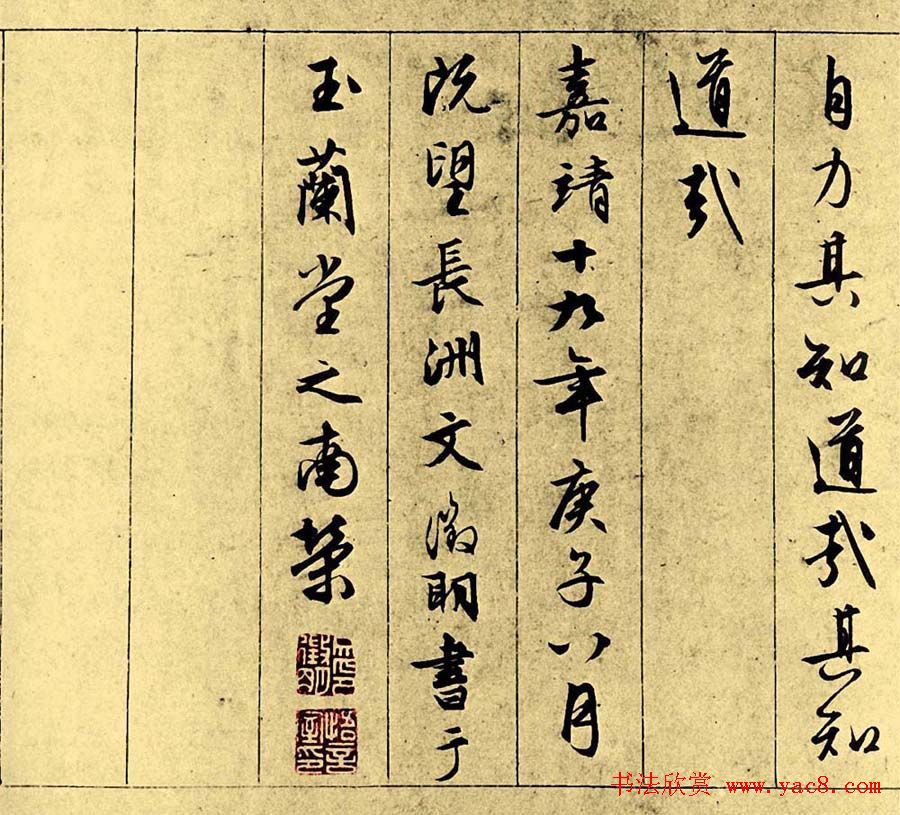 自力其知道哉其知
道哉
嘉靖十九年庚子八月
既望長洲文徵明書于
玉蘭堂之南榮
書法欣賞 www.yac8.com